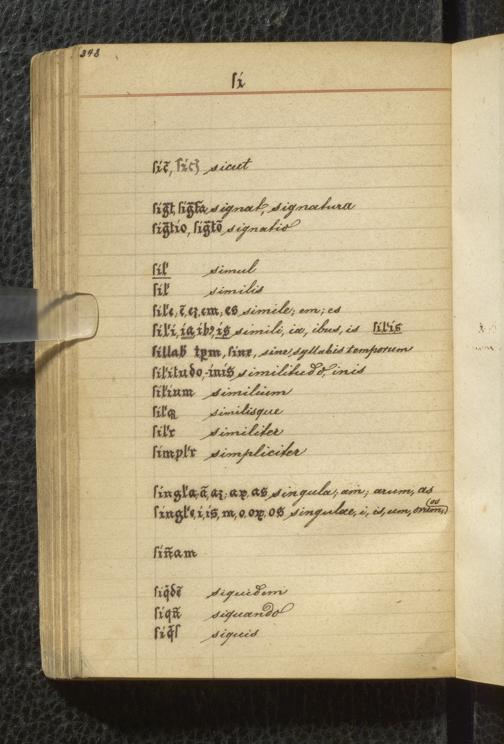 248
ſi
ſic̄, ſicꝫ sicut
ſig̅t, ſig̅ta signat, signatura
ſig̅tio, ſig̅tō signatio
ſil' simul
ſil' similis
ſil'e, ē, eꝫ, em, es simile; em; es
ſil'i, ia, ib9, is simili, ia, ibus, is ſil'is
ſillab' tpm, ſine, sine, syllabis temporum
ſil'itudo, -inis similitudo, inis
ſil'ium similium
ſil'q similisque
ſil'r similiter
ſimpl'r simpliciter
ſingl'a, ā, aꝫ; aꝝ, as singula, am; arum, as
ſingl'e, i, is, m, o, oꝝ, os singulae, i, is, um, orum, (os)
ſin̄am
ſiq̄dē siquidem
ſiqn̄ siquando
ſiq̄ſ siquis